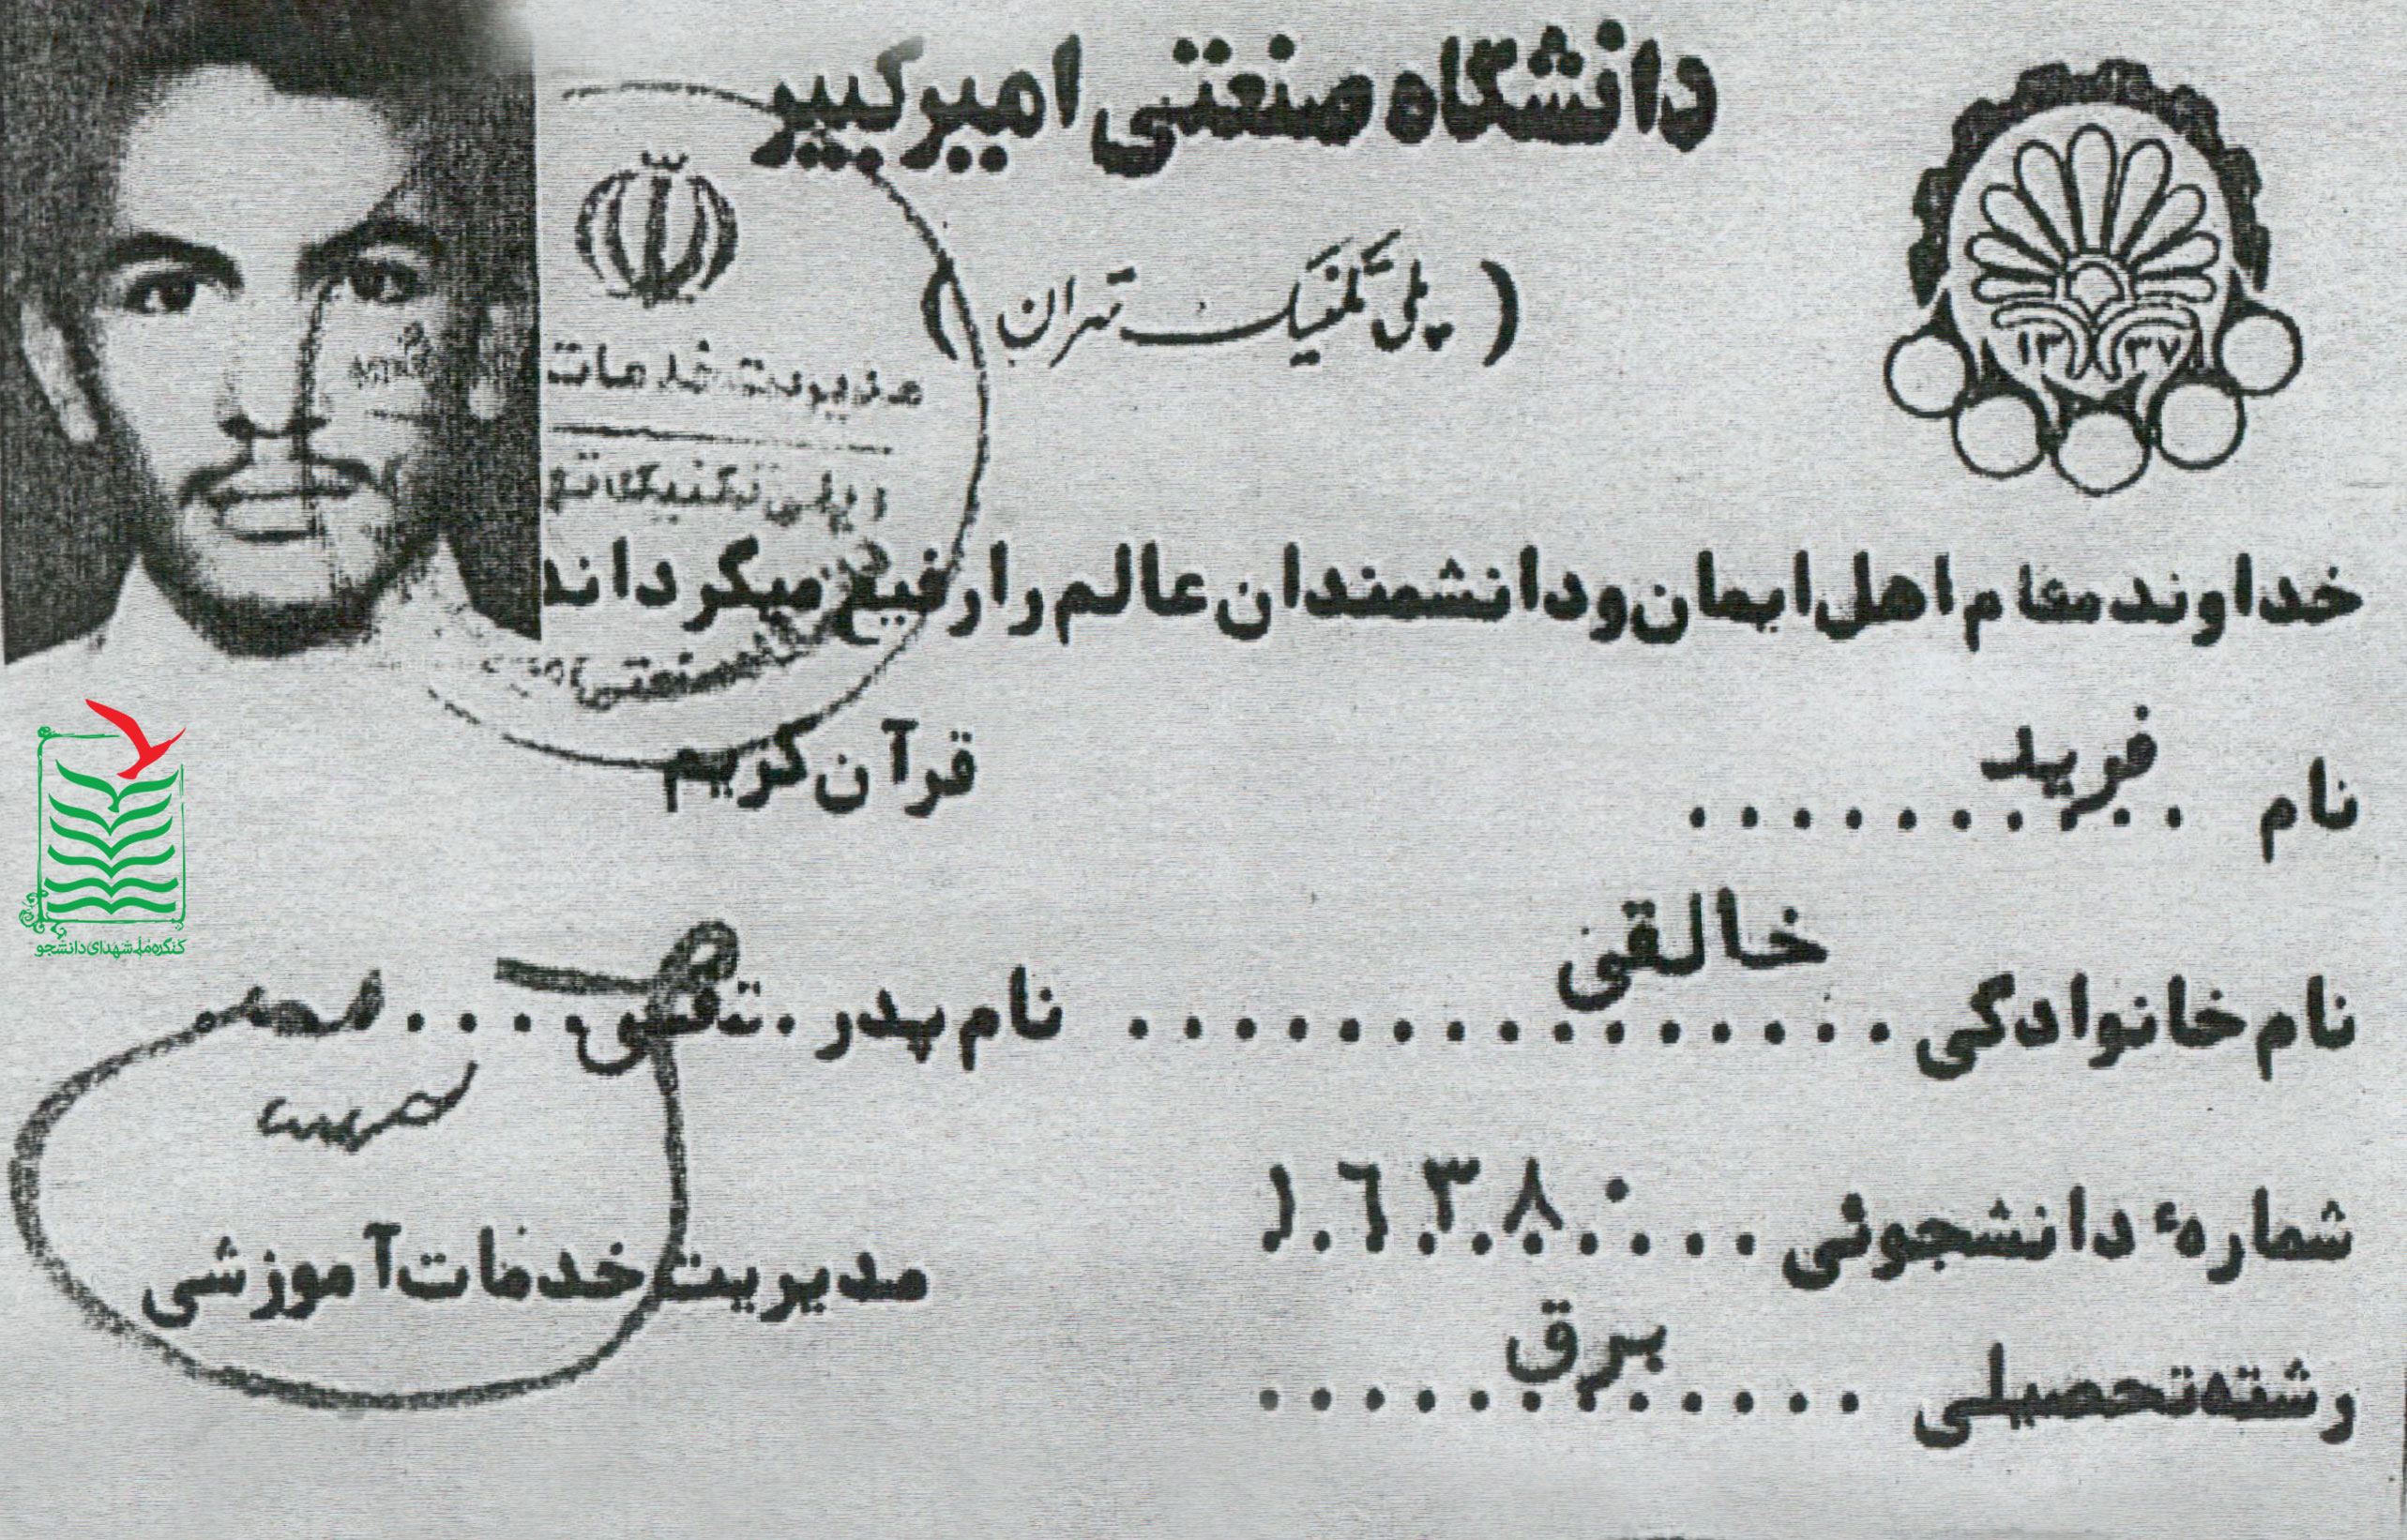 دانشگاه صنعتی امیرکبیر
(پلی تکنیک تهران)
۱۳۳۷
مدیریت خدمات
(پلی تکنیک ته
صنعتی
خداوند مقام اهل ایمان و دانشمندان عالم را رفیع میگرداند
قرآن کریم
نام فرید
نام خانوادگی خالقی نام پدر تقی
شمارهٔ دانشجوئی ۱۶۳۸۰
رشته تحصیلی برق
مدیریت خدمات آموزشی
کنگره ملی شهدای دانشجو